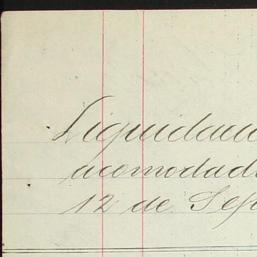 Liquidacio
acomodad
12 de Sep